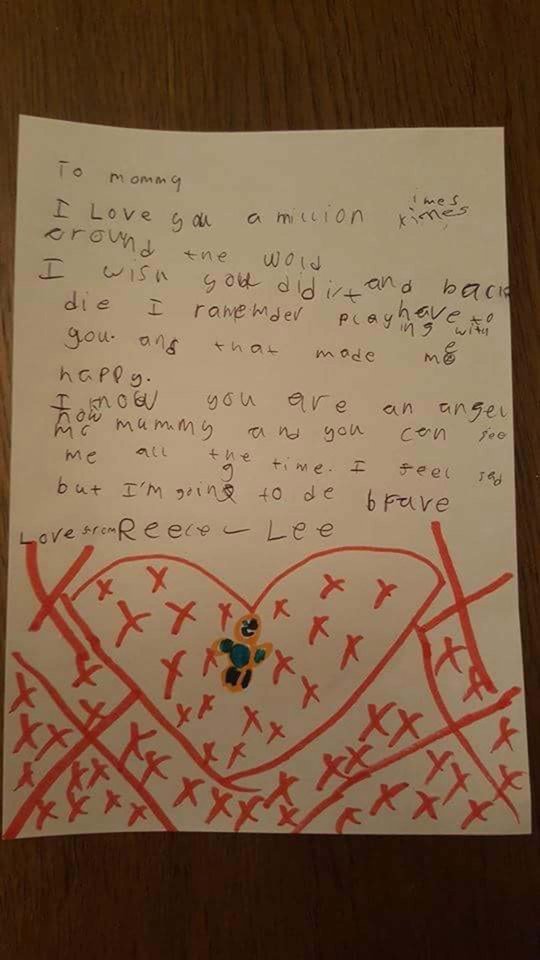 To mommy
I Love you a million times ximes
around the wold
I wish you didint and back
die I ramemder play have to
you. and that made me ing with
happy.
I know you are an angel
now mc mummy and you can see
me all the time. I feel sad
but I'm going to de brave
Love from Reece - Lee